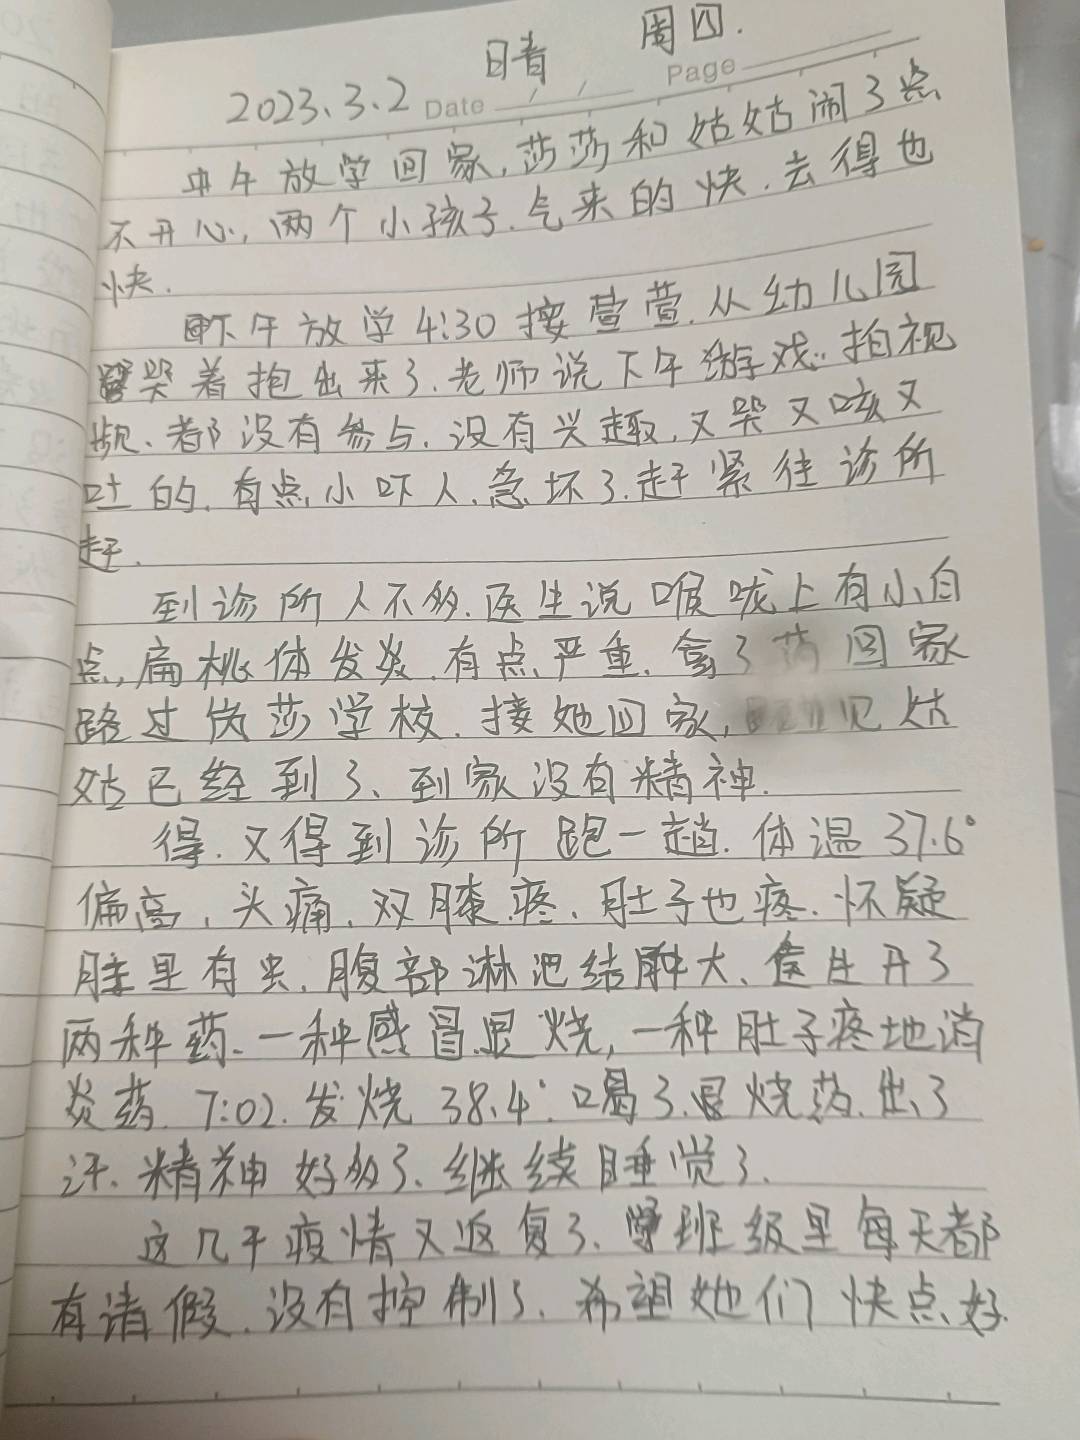 晴 周四.
2023.3.2 Date / / Page
中午放学回家,莎莎和姑姑闹了点
不开心,两个小孩子.气来的快.去得也
快.
下午放学4:30接萱萱.从幼儿园
哭着抱出来了.老师说下午游戏.拍视
频、都没有参与.没有兴趣,又哭又咳又
吐的.有点小吓人.急坏了.赶紧往诊所
赶.
到诊所人不多.医生说喉咙上有小白
点,扁桃体发炎.有点严重.拿了药回家
路过莎莎学校.接她回家,见姑
姑已经到了、到家没有精神.
得.又得到诊所跑一趟.体温37.6°
偏高、头痛、双膝疼、肚子也疼.怀疑
肚里有虫、腹部淋巴结肿大、医生开了
两种药.一种感冒退烧,一种肚子疼地消
炎药.7:02.发烧38.4°.喝了退烧药.出了
汗.精神好多了、继续睡觉了.
这几天疫情又返复了、班级里每天都
有请假.没有控制了.希望她们快点好.